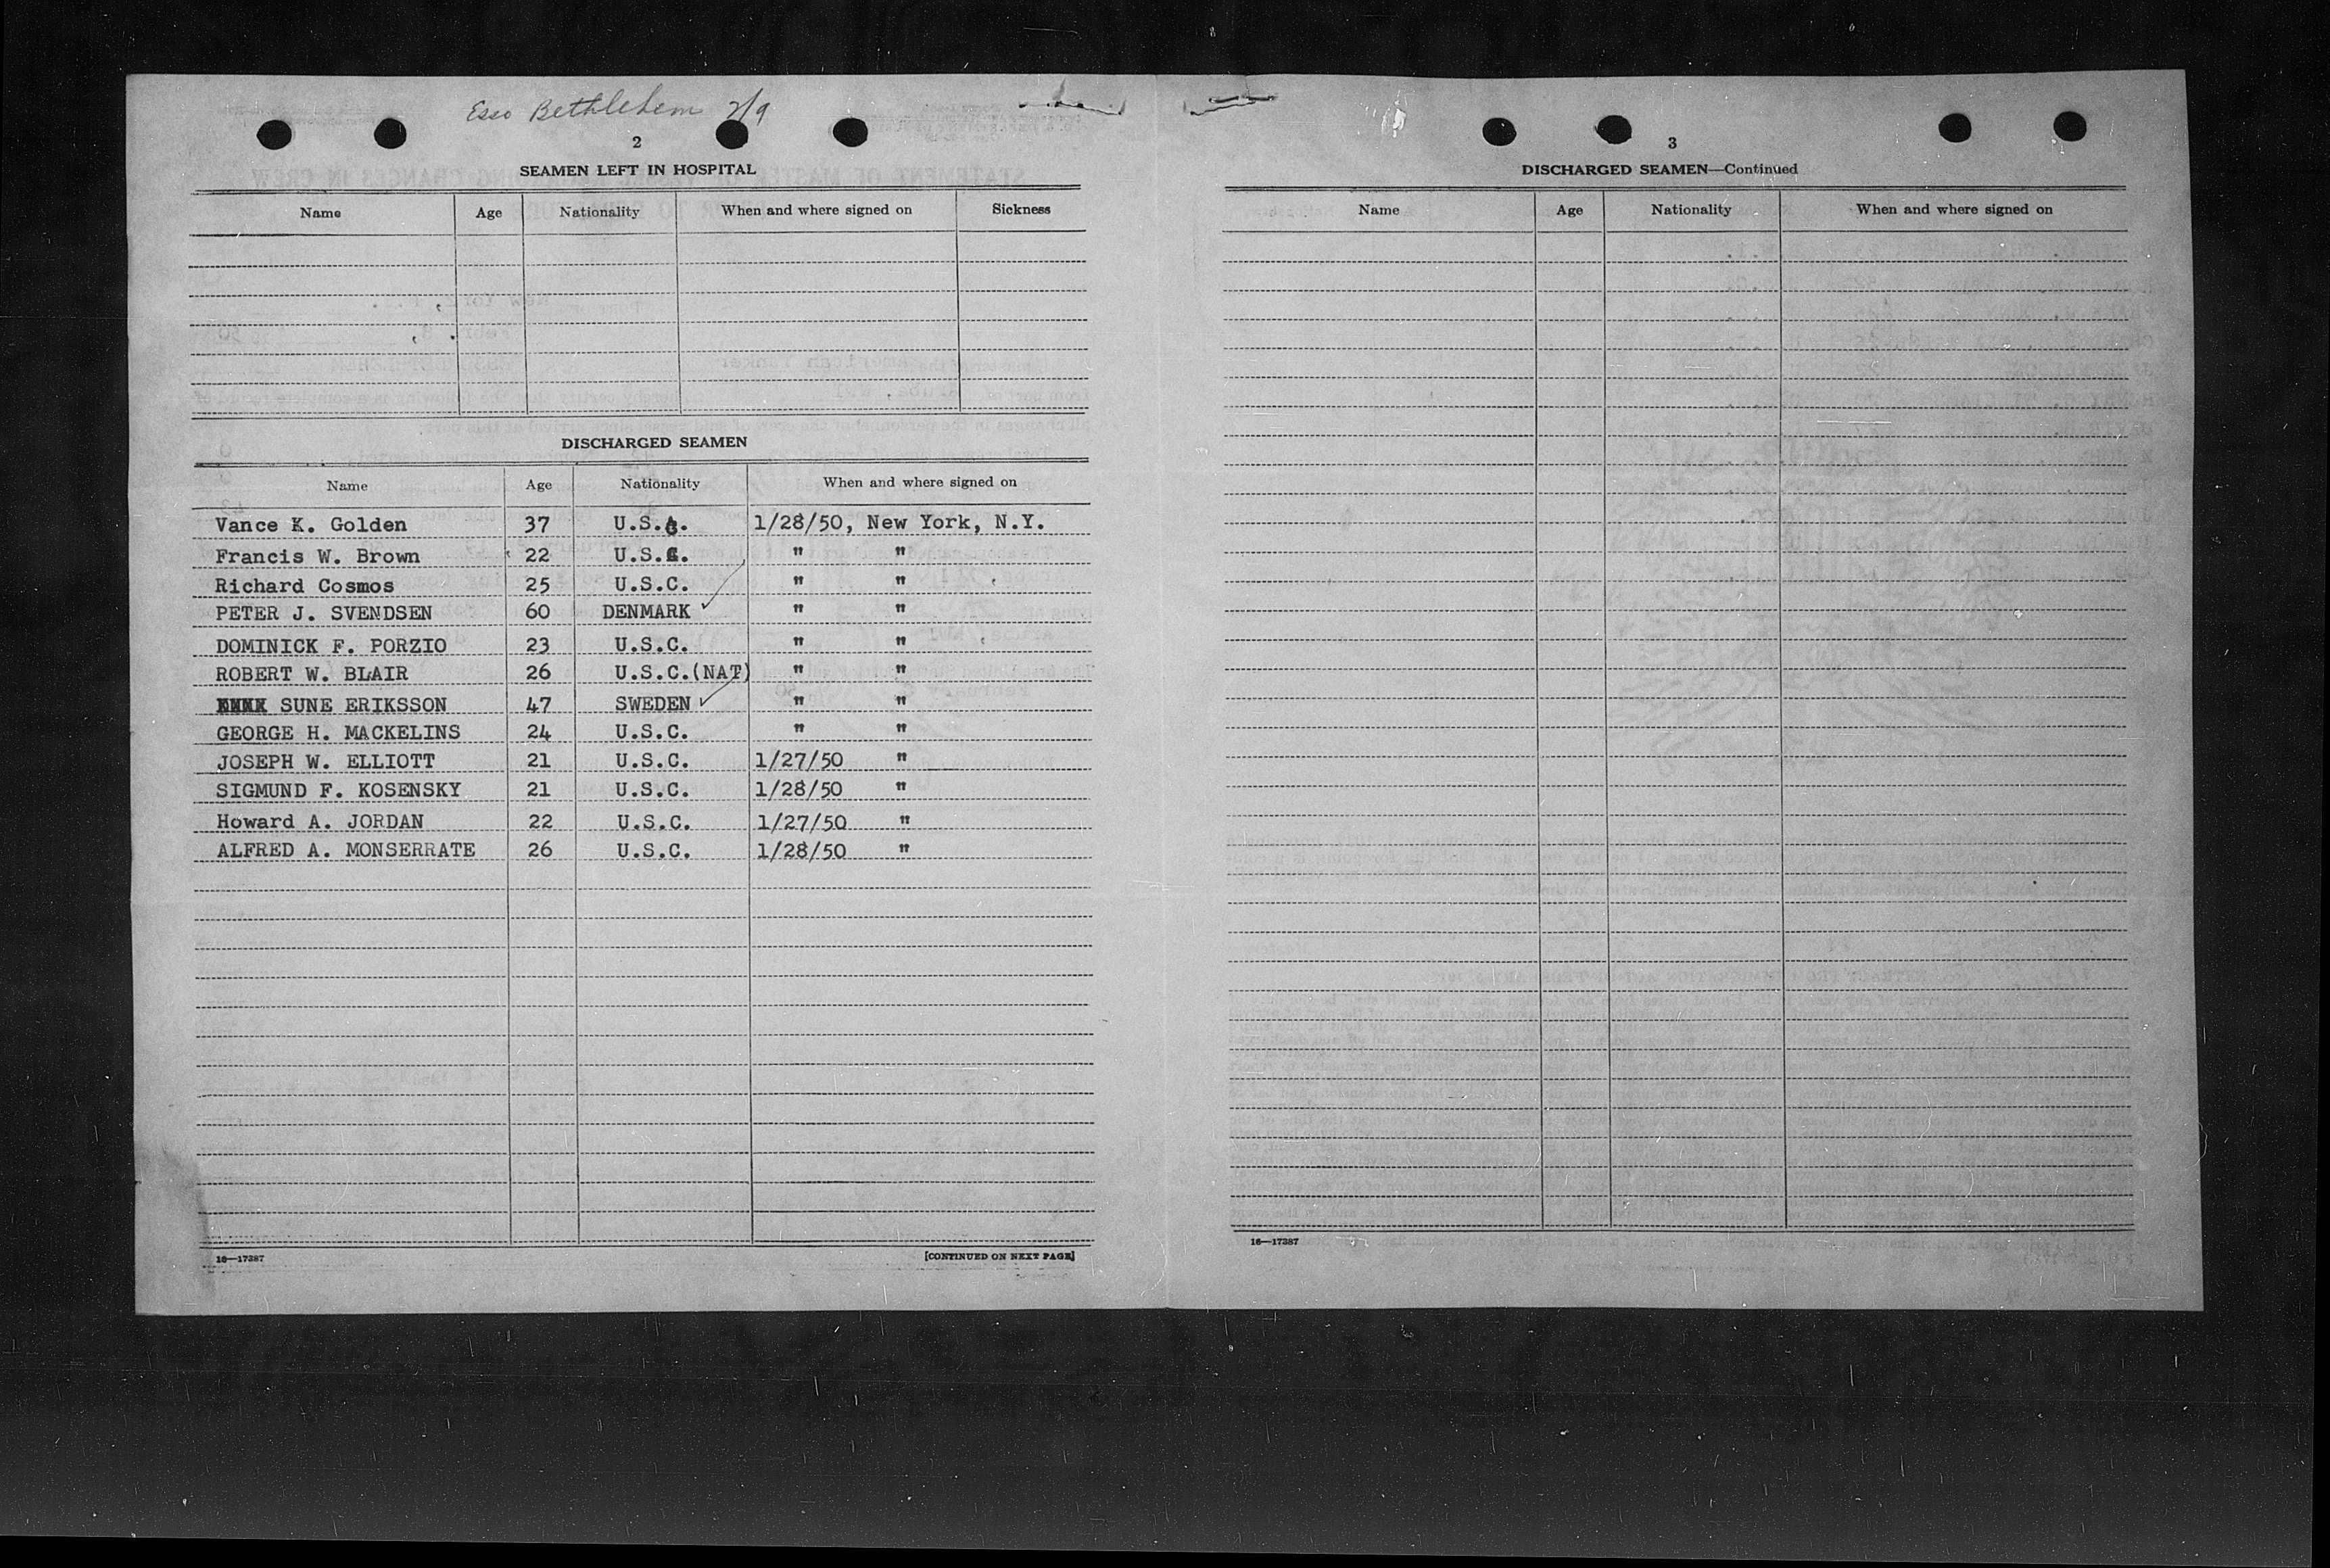 Esso Bethlehem 2/9
2
SEAMEN LEFT IN HOSPITAL
Name Age Nationality When and where signed on Sickness
DISCHARGED SEAMEN
Name Age Nationality When and where signed on
Vance K. Golden 37 U.S.C. 1/28/50, New York, N.Y.
Francis W. Brown 22 U.S.C. " "
Richard Cosmos 25 U.S.C. " "
PETER J. SVENDSEN 60 DENMARK ✓ " "
DOMINICK F. PORZIO 23 U.S.C. " "
ROBERT W. BLAIR 26 U.S.C.(NAT) " "
SUNE ERIKSSON 47 SWEDEN ✓ " "
GEORGE H. MACKELINS 24 U.S.C. " "
JOSEPH W. ELLIOTT 21 U.S.C. 1/27/50 "
SIGMUND F. KOSENSKY 21 U.S.C. 1/28/50 "
Howard A. JORDAN 22 U.S.C. 1/27/50 "
ALFRED A. MONSERRATE 26 U.S.C. 1/28/50 "
16—17387 [CONTINUED ON NEXT PAGE]
3
DISCHARGED SEAMEN—Continued
Name Age Nationality When and where signed on
16—17387